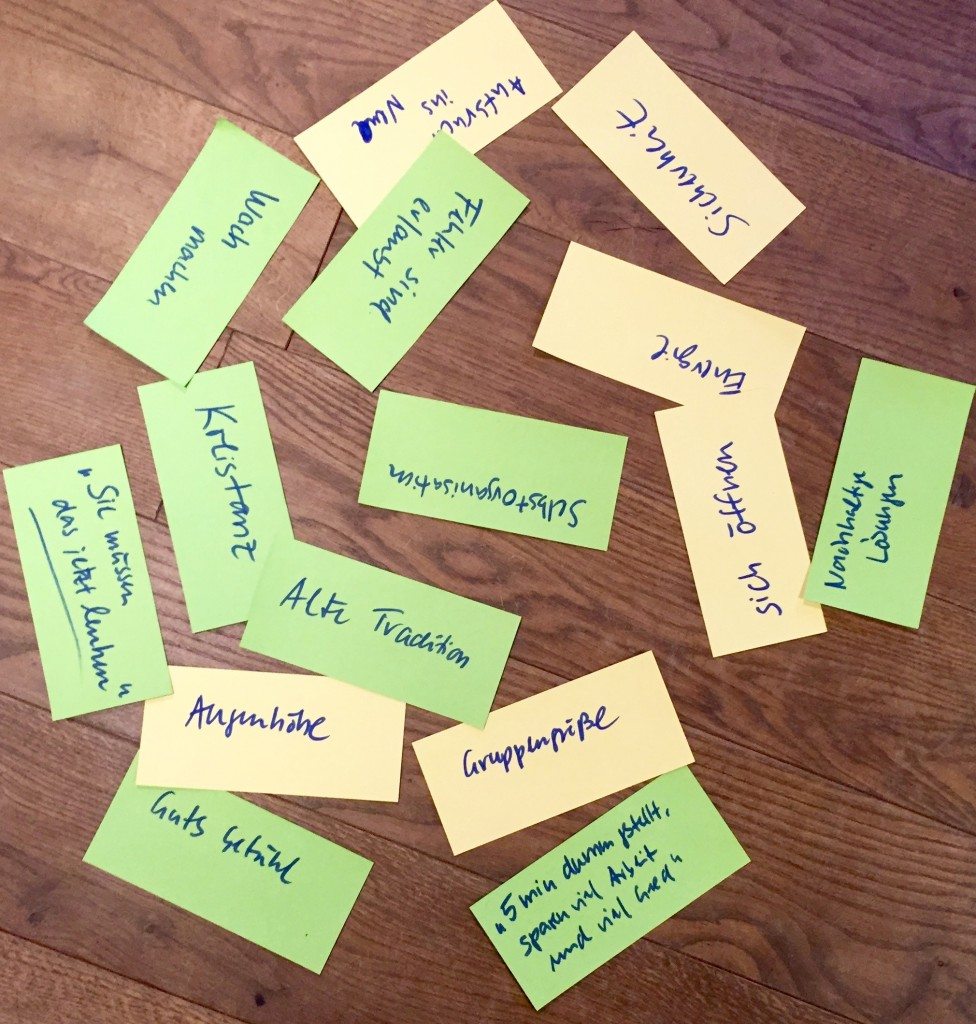 ins
Neue
Sicherheit
Wach
machen
Fehler sind
erlaubt
Energie
Kreistanz
Selbstorganisation
sich öffnen
Nachhaltige
Lösungen
„Sie müssen
das jetzt lernen“
Alte Tradition
Augenhöhe
Gruppengröße
Gutes Gefühl
„5 min dumm gestellt,
sparen viel Arbeit
und viel Geld“